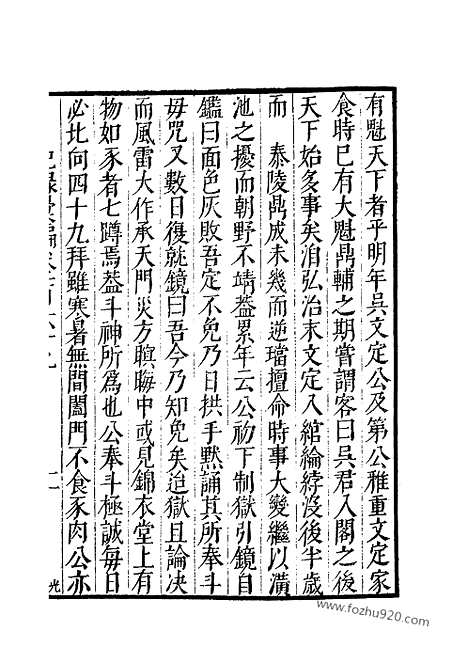 有魁天下者乎明年吳文定公及第公雅重文定家
食時已有大魁鼎輔之期嘗謂客曰吳君入閣之後
天下始多事矣洎弘治末文定入綰綸綍沒後半歲
而 泰陵鼎成未幾而逆璫擅命時事大變繼以潢
池之擾而朝野不靖葢累年云公初下制獄引鏡自
鑑曰面色灰敗吾定不免乃日拱手默誦其所奉斗
母咒又數日復就鏡曰吾今乃知免矣迨獄且論決
而風雷大作承天門災方瞑晦中或見錦衣堂上有
物如豕者七蹲焉葢斗神所為也公奉斗極誠每日
必北向四十九拜雖寒暑無間闔門不食豕肉公亦
二
光
www.fozhu920.com